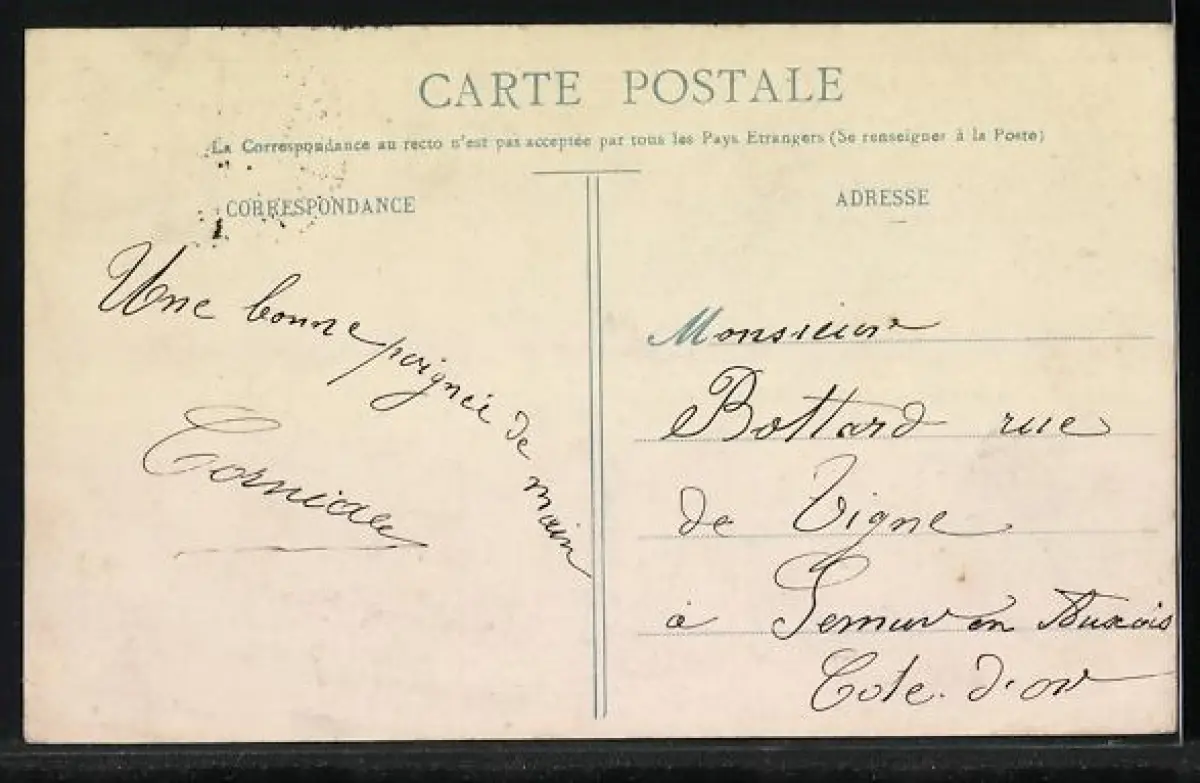 CARTE POSTALE
La Correspondance au recto n'est pas acceptée par tous les Pays Etrangers (Se renseigner à la Poste)
CORRESPONDANCE
Une bonne poignée de main
ADRESSE
Monsieur
Bottard rue
de Vigne
à Semur en Auxois
Cote. d'or